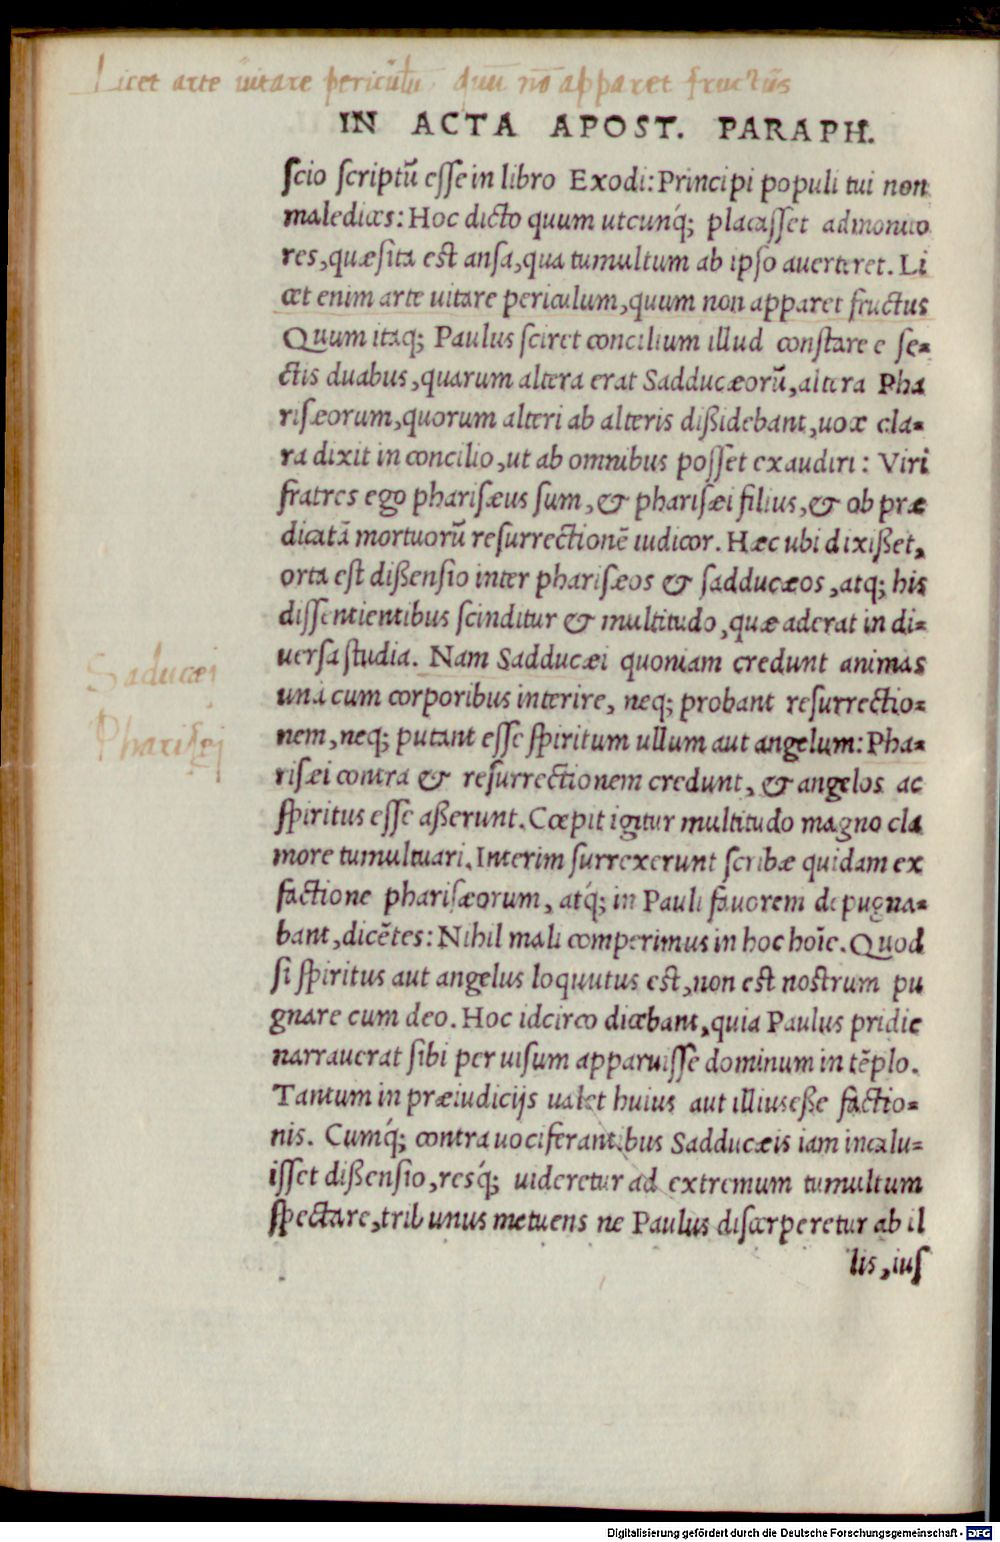 Licet arte uitare pericūlū quū nō apparet fructus
IN ACTA APOST. PARAPH.
scio scriptū esse in libro Exodi: Principi populi tui non
maledices: Hoc dicto quum utcunq; placasset admonito
res, quæsita est ansa, qua tumultum ab ipso auerteret. Li
cet enim arte uitare periculum, quum non apparet fructus
Quum itaq; Paulus sciret concilium illud constare e se=
ctis duabus, quarum altera erat Sadducæorū, altera Pha
risæorum, quorum alteri ab alteris dißidebant, uoce cla=
ra dixit in concilio, ut ab omnibus posset exaudiri: Viri
fratres ego pharisæus sum, & pharisæi filius, & ob præ
dicatā mortuorū resurrectionē iudicor. Hæc ubi dixißet,
orta est dißensio inter pharisæos & sadducæos, atq; his
dissentientibus scinditur & multitudo, quæ aderat in di=
uersa studia. Nam Sadducæi quoniam credunt animas
Saducæi
unà cum corporibus interire, neq; probant resurrectio=
Pharisęi
nem, neq; putant esse spiritum ullum aut angelum: Pha=
risæi contra & resurrectionem credunt, & angelos ac
spiritus esse aßerunt. Cœpit igitur multitudo magno cla
more tumultuari. Interim surrexerunt scribæ quidam ex
factione pharisæorum, atq́; in Pauli fauorem depugna=
bant, dicētes: Nihil mali comperimus in hoc hoīe. Quod
si spiritus aut angelus loquutus est, non est nostrum pu
gnare cum deo. Hoc idcirco dicebant, quia Paulus pridie
narrauerat sibi per uisum apparuisse dominum in tēplo.
Tantum in præiudicijs ualet huius aut illius eße factio=
nis. Cumq́; contra uociferantibus Sadducæis iam incalu=
isset dißensio, resq́; uideretur ad extremum tumultum
spectare, tribunus metuens ne Paulus discerperetur ab il
lis, ius
Digitalisierung gefördert durch die Deutsche Forschungsgemeinschaft - DFG